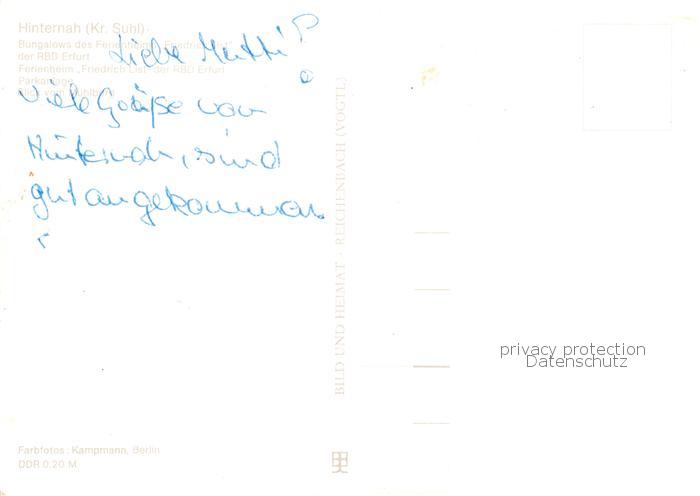 Hinternah (Kr. Suhl)
Bungalows des Ferienheims "Friedrich List"
der RBD Erfurt
Ferienheim „Friedrich List" der RBD Erfurt
Parkanlage
Liebe Mutti!
viele Grüße von
Hinternah, sind
gut angekommen
BILD UND HEIMAT · REICHENBACH (VOGTL)
privacy protection
Datenschutz
Farbfotos: Kampmann, Berlin
DDR 0,20 M